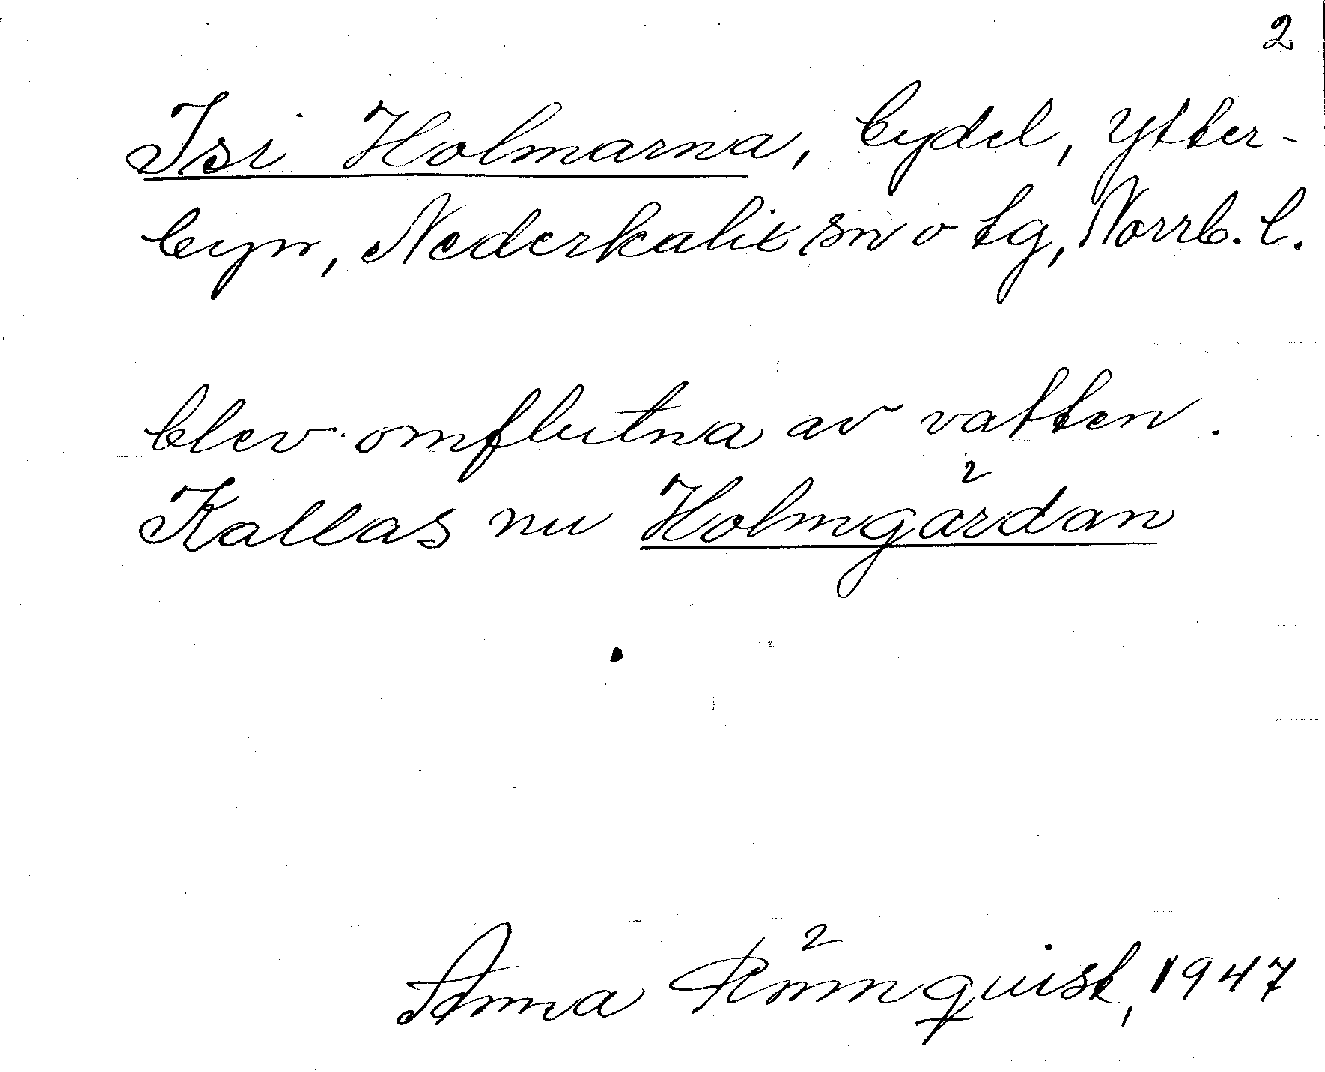 2
Isi Holmarna, bydel, Ytter-
byn, Nederkalix sn o tg, Norrb. l.
blev omflutna av vatten.
Kallas nu Holmgärdan
Anna Rönnquist, 1947